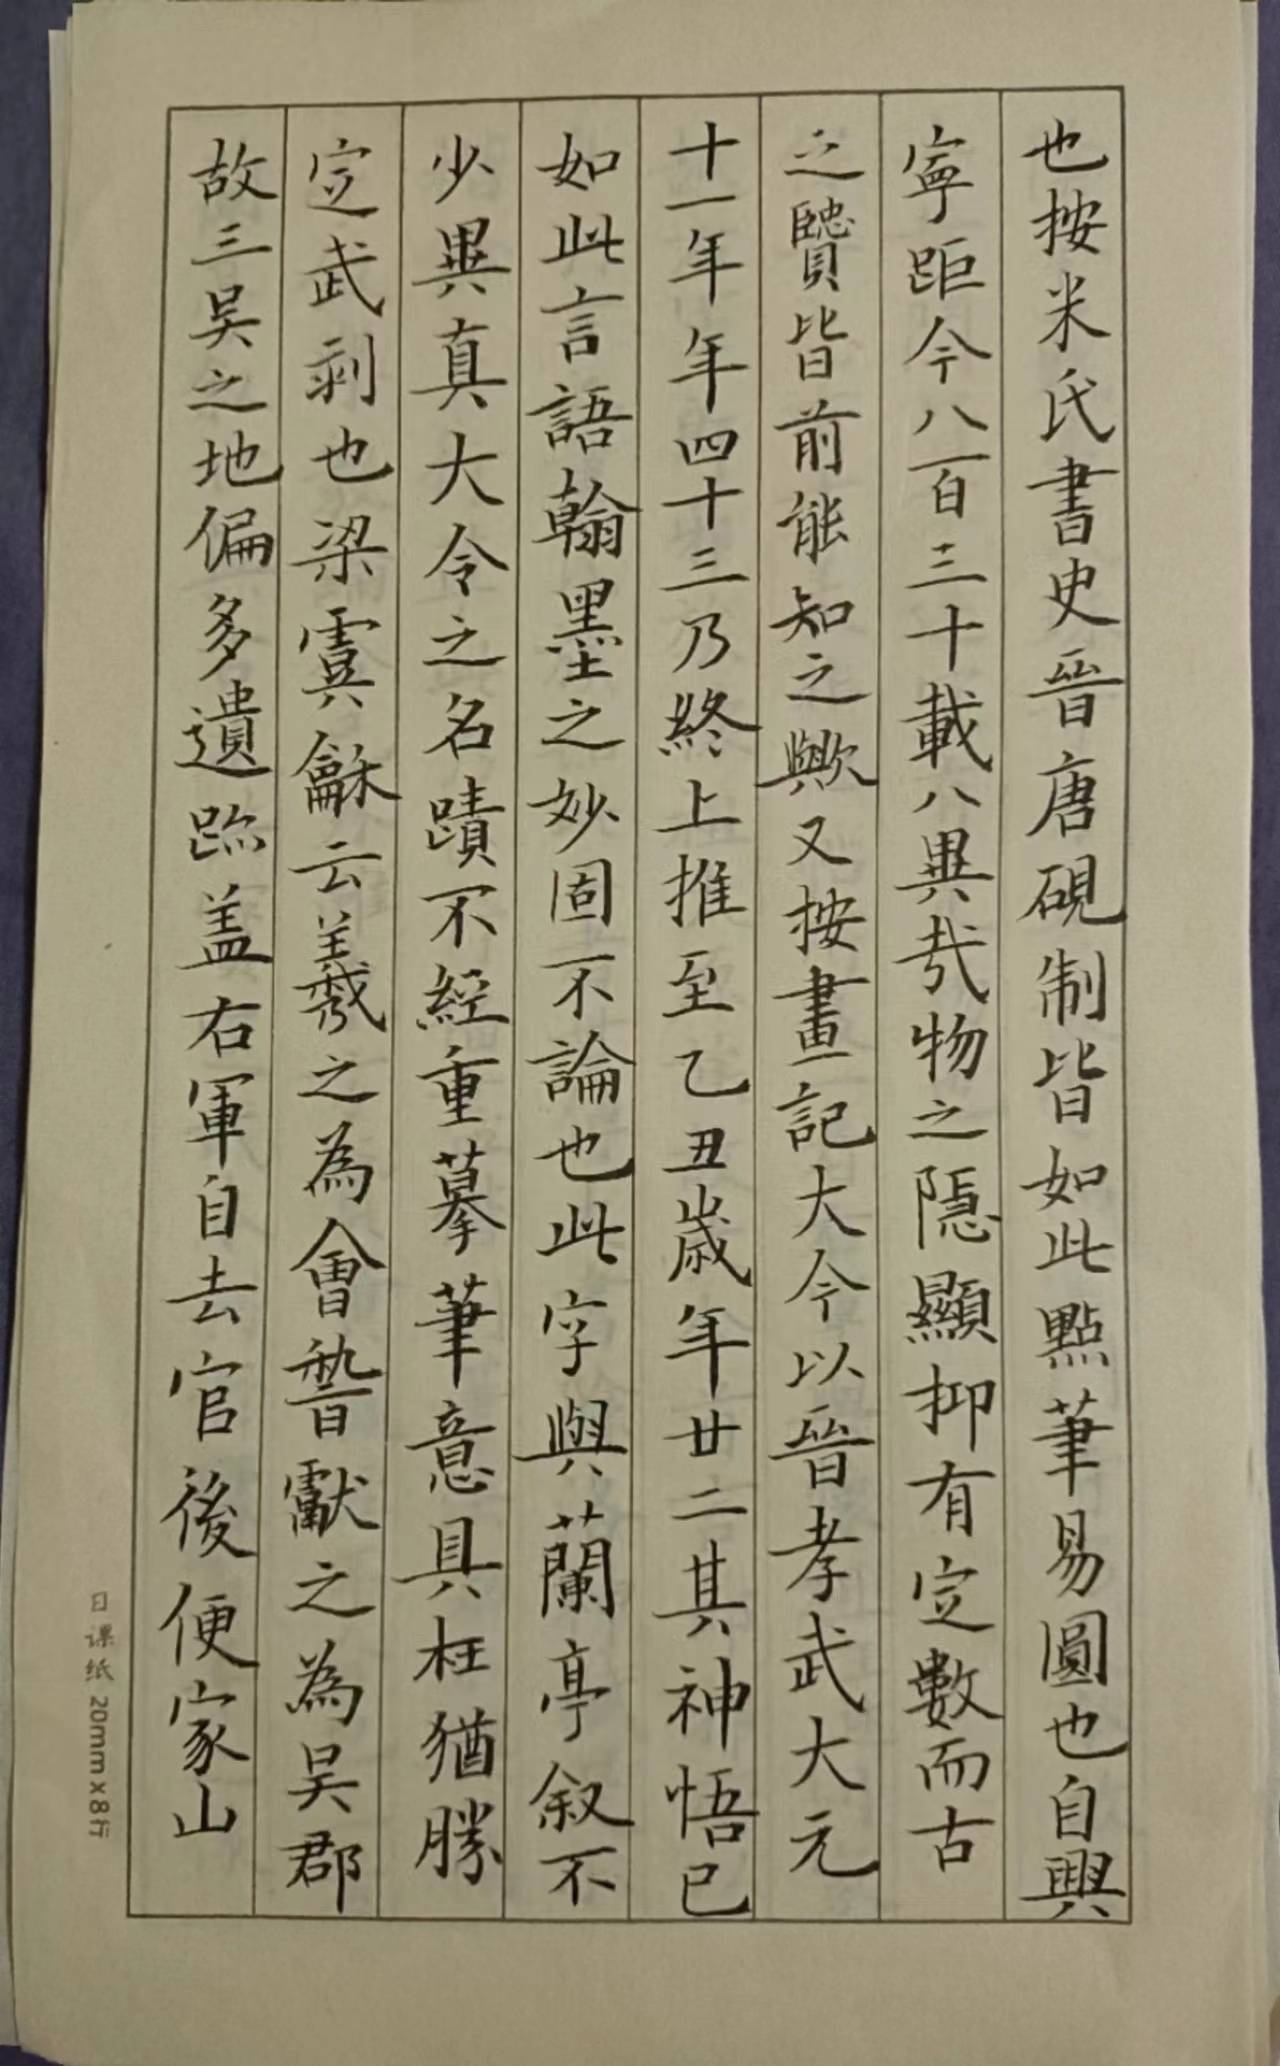 也按米氏書史晉唐硯制皆如此點筆易圓也自興
寧距今八百三十載八異哉物之隱顯抑有定數而古
之賢皆前能知之歟又按畫記大令以晉孝武大元
十一年年四十三乃終上推至乙丑歲年廿二其神悟已
如此言語翰墨之妙固不論也此字與蘭亭叙不
少異真大令之名蹟不經重摹筆意具在猶勝
定武刻也梁虞龢云羲之為會稽獻之為吳郡
故三吳之地偏多遺跡盖右軍自去官後便家山
日课纸 20mm×8行